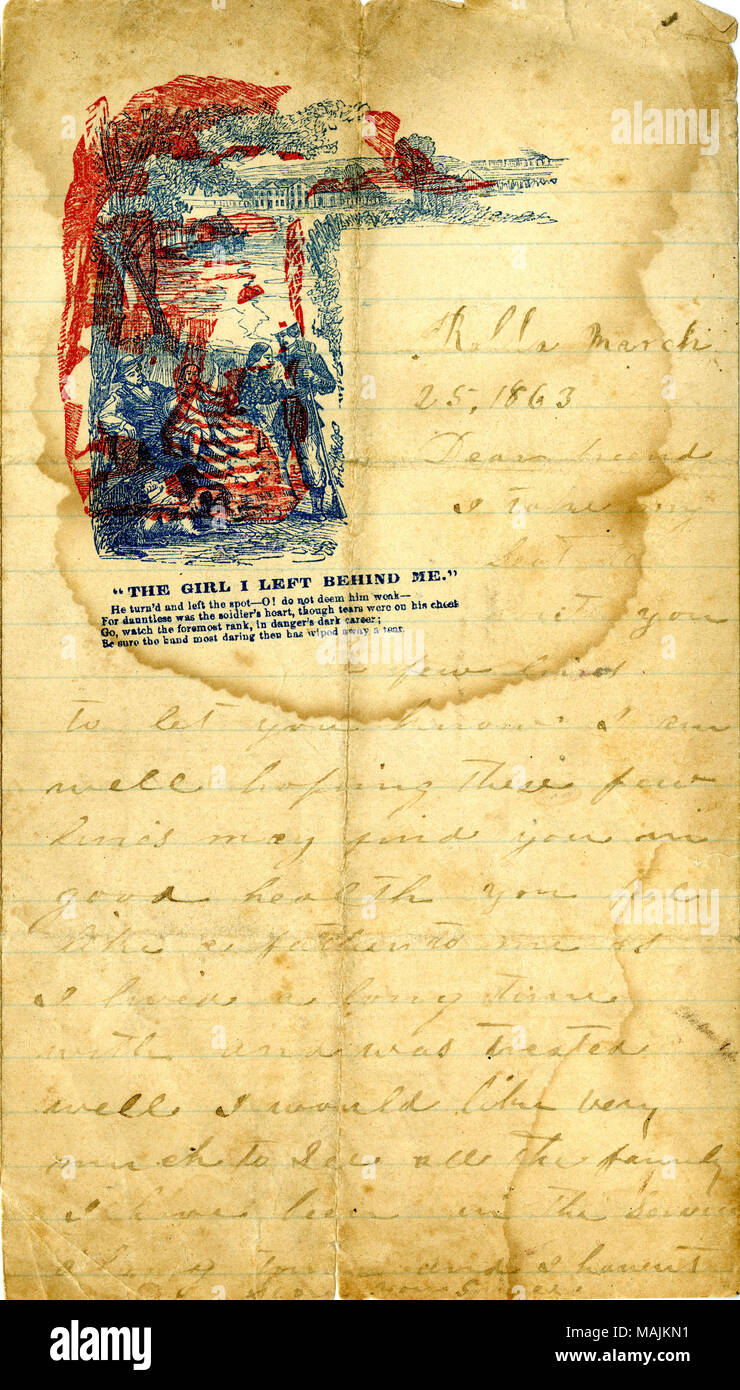 Rolla March
25, 1863
Dear friend
I take my
Seat to
"THE GIRL I LEFT BEHIND ME."
He turn'd and left the spot—O! do not deem him weak—
For dauntless was the soldier's heart, though tears were on his cheek
Go, watch the foremost rank, in danger's dark career;
Be sure the hand most daring then has wiped away a tear.
you
a few lines
to let you know I am
well hoping these few
lines may find you in
good health you
like a father to me as
I lived a long time
with and was treated
well I would like very
much to See all the family
I have been in the service
a long and I havent
alamy
Image ID: MAJKN1
www.alamy.com